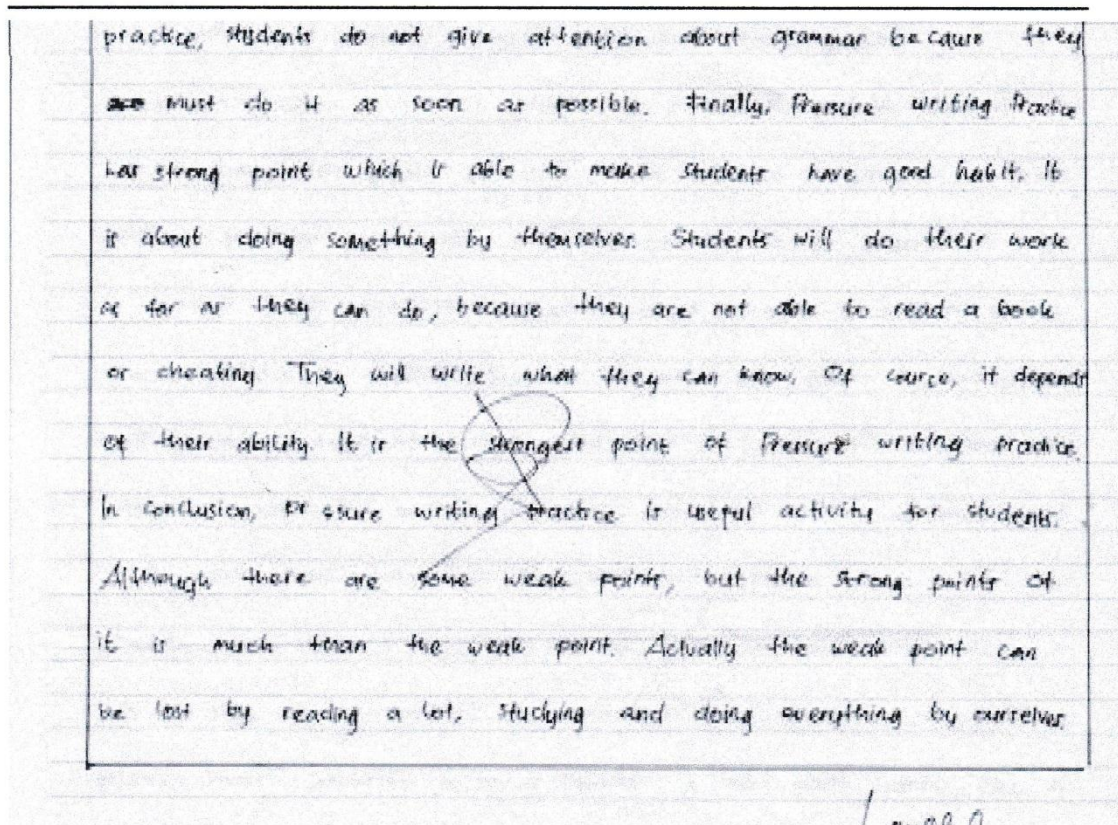 practice, students do not give attention about grammar because they
must do it as soon as possible. Finally, Pressure writing Practice
has strong point which is able to make students have good habit. it
is about doing something by themselves. Students will do their work
as far as they can do, because they are not able to read a book
or cheating. They will write what they can know. Of course, it depends
of their ability. It is the strongest point of Pressure writing practice.
In conclusion, Pr ssure writing practice is useful activity for students.
Although there are some weak points, but the strong points of
it is much than the weak point. Actually the weak point can
be lost by reading a lot, studying and doing everything by ourselves.